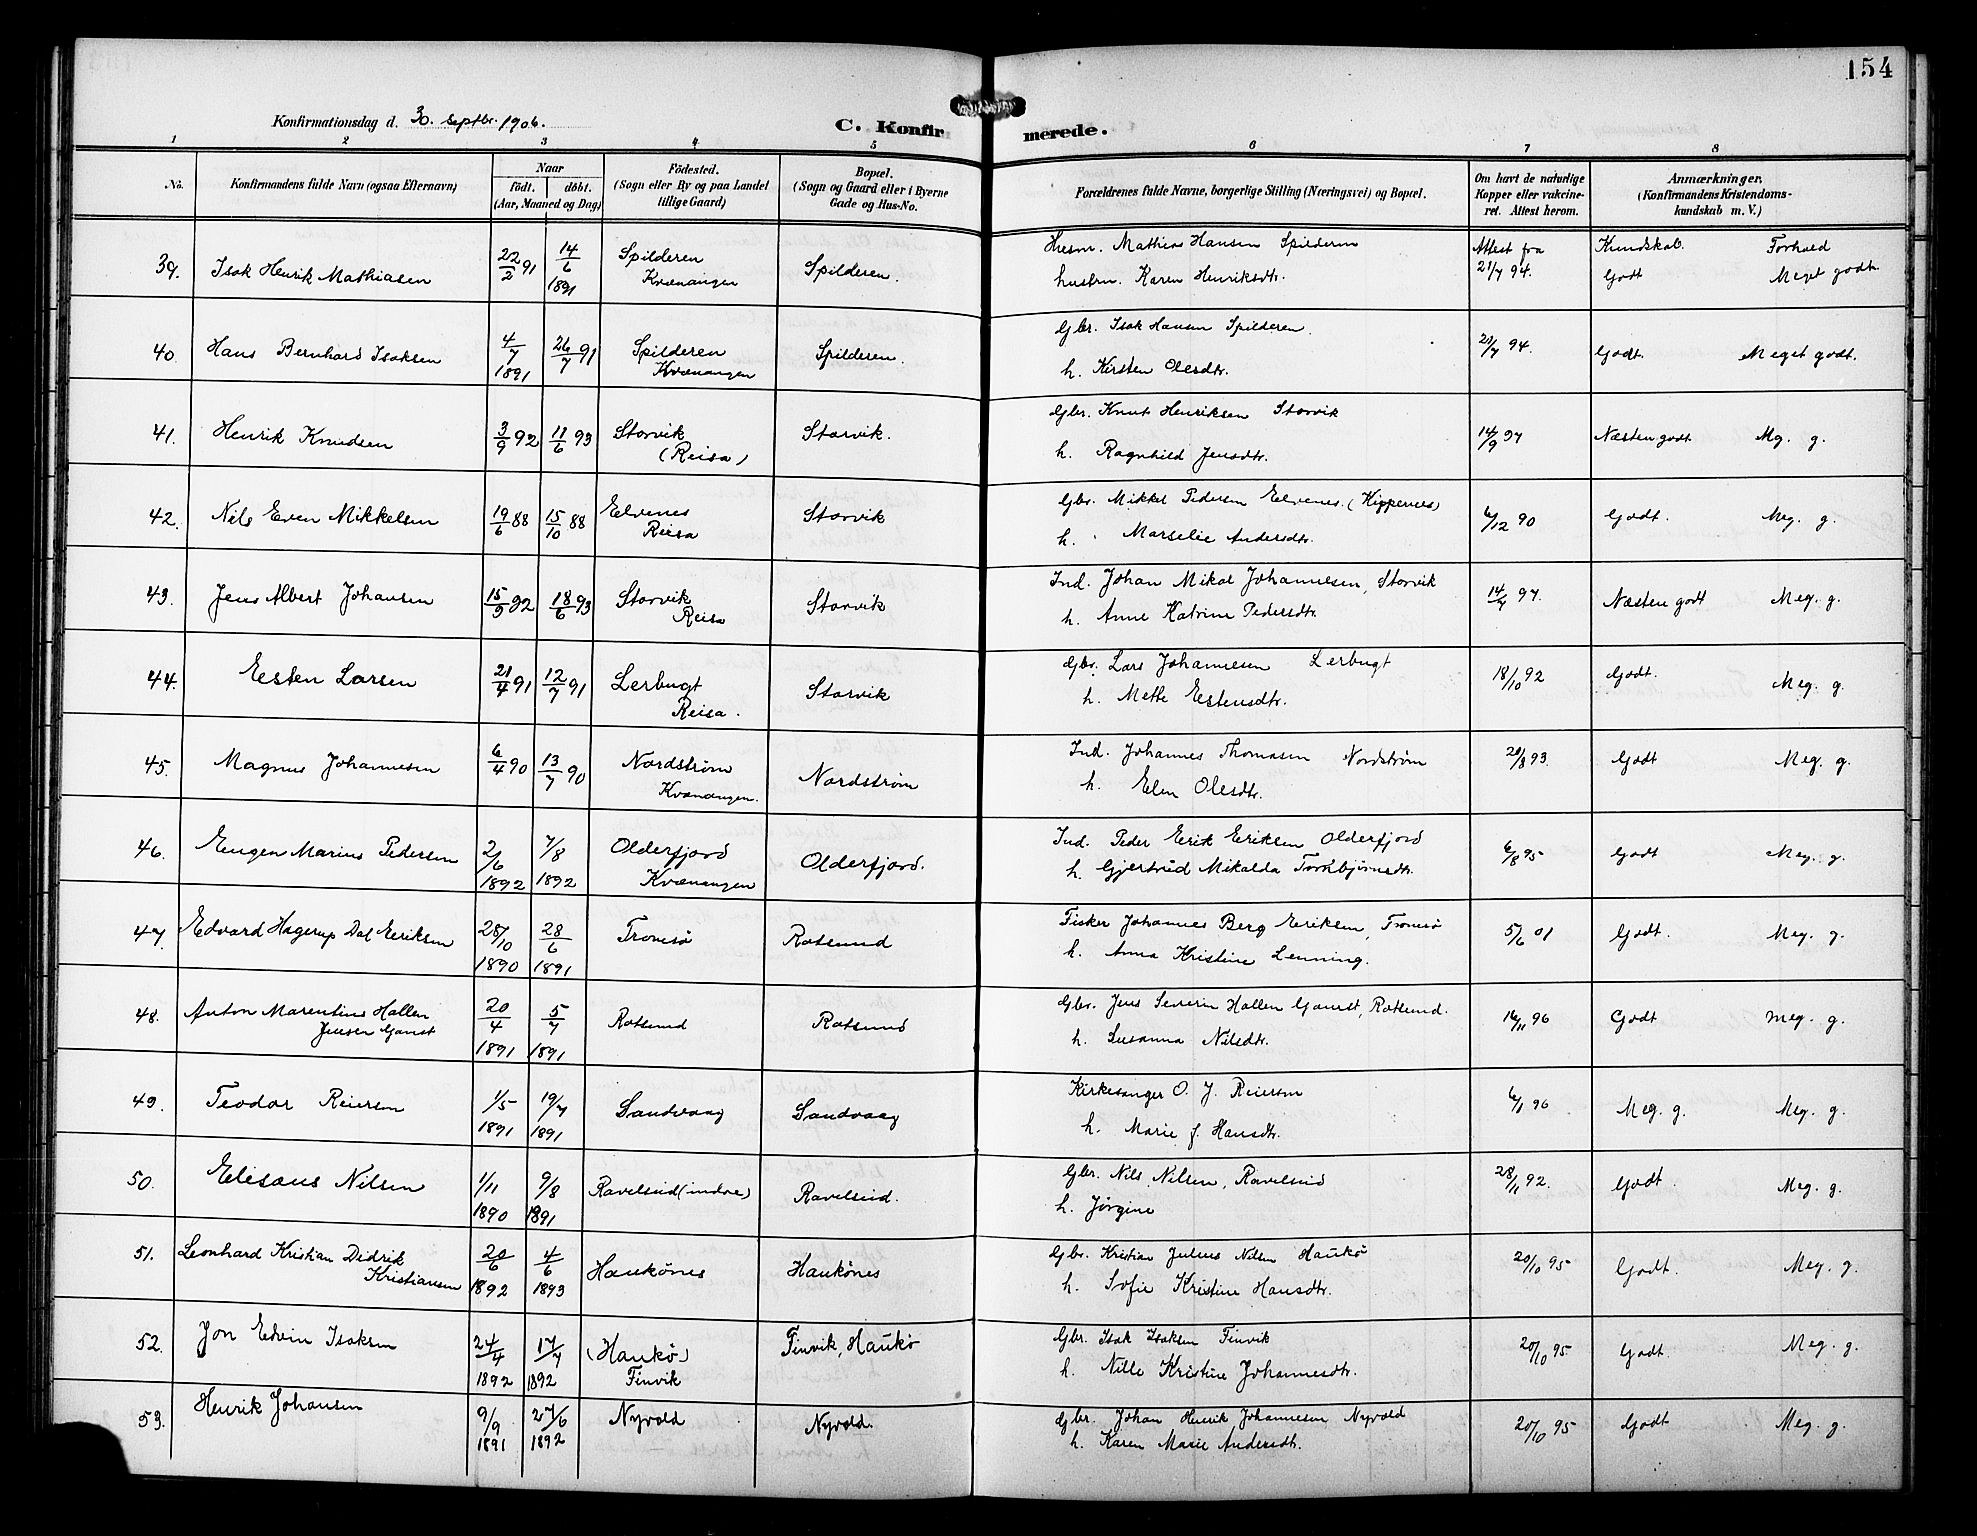 154
Konfirmationsdag d. 30. septbr. 1906.
C. Konfirmerede.
1 2 3 4 5 6 7 8
No.
Konfirmandens fulde Navn (ogsaa Efternavn)
Naar
født. døbt.
(Aar, Maaned og Dag)
Födested.
(Sogn eller By og paa Landet
tillige Gaard)
Bopæl.
(Sogn og Gaard eller i Byerne
Gade og Hus-No.
Forældrenes fulde Navne, borgerlige Stilling (Næringsvei) og Bopæl.
Om havt de naturlige
Kopper eller vakcine-
ret. Attest herom.
Anmærkninger.
(Konfirmandens Kristendoms-
kundskab m. V.)
39. Isak Henrik Mathiasen 22/2 91 14/6 1891 Spilderen Kvænangen Spilderen.
Husm. Mathias Hansen Spilderen
hustru. Karen Henriksdtr.
Attest fra 21/7 94. Kundskab. Godt Forhold Meget godt.
40. Hans Bernhard Isaksen 4/7 1891 26/7 91 Spilderen Kvænangen Spilderen.
Gbr. Isak Hansen Spilderen.
h. Kirsten Olesdtr.
21/7 94. Godt. Meget godt.
41. Henrik Knudsen 3/9 92 11/6 93 Storvik (Reisa) Storvik.
Gbr. Knut Henriksen Storvik
h. Ragnhild Jensdtr.
14/9 97 Næsten godt Mg. g.
42. Nils Even Mikkelsen 19/6 88 15/10 88 Elvenes Reisa Storvik
Gbr. Mikkel Pedersen Elvenes. (Kippernes)
h. Marselie Andersdtr.
6/12 90 Godt. Meg. g.
43. Jens Albert Johansen 15/9 92 18/6 93 Storvik Reisa Storvik
Ind. Johan Mikal Johannesen, Storvik
h. Anne Katrine Pedersdtr.
14/9 97. Næsten godt Meg. g.
44. Esten Larsen 21/4 91 12/7 91 Lerbugt Reisa. Storvik
Gbr. Lars Johannesen Lerbugt
h. Mette Estensdtr.
18/10 92 Godt. Meg. g.
45. Magnus Johannesen 6/4 90 13/7 90 Nordstrøm Kvænangen. Nordstrøm
Ind. Johannes Thomasen Nordstrøm
h. Elen Olesdtr.
20/8 93. Godt Meg. g.
46. Eugen Marius Pedersen 2/6 1892 7/8 1892 Olderfjord Kvænangen Olderfjord.
Ind. Peder Erik Eriksen Olderfjord
h. Gjertrud Mikalda Torkbjørnsdtr.
6/8 95 Godt Meg. g.
47. Edvard Hagerup Dal Eriksen 28/10 1890 28/6 1891 Tromsø Rotsund
Fisker Johannes Berg Eriksen, Tromsø
h. Anna Kristine Lenning.
5/6 01 Godt. Meg. g.
48. Anton Marentius Hallen
Jensen Gamst 20/4 1891 5/7 1891 Rotsund Rotsund
Gbr. Jens Severin Hallen Gamst, Rotsund.
h. Susanna Nilsdtr.
16/11 96 Godt Meg. g.
49. Teodor Reiersen 1/5 1891 19/7 1891 Sandvaag Sandvaag
Kirkesanger O. J. Reiersen
h. Marie f. Hansdtr.
6/1 96 Meg. g. Meg. g.
50. Elisæus Nilsen 1/11 1890 9/8 1891 Ravelseid (indre) Ravelseid.
Gbr. Nils Nilsen, Ravelseid
h. Jørgine
28/11 92. Godt. Meg. g.
51. Leonhard Kristian Didrik
Kristiansen 20/6 1892 4/6 1893 Haukønes Haukönes
Gbr. Kristian Julius Nilsen Haukø
h. Sofie Kristine Hansdtr.
20/10 95 Godt. Meg. g.
52. Jon Edvin Isaksen 24/4 1892 17/7 1892 (Haukø) Finvik Finvik, Haukø
Gbr. Isak Isaksen Finvik
h. Nille Kristine Johannesdtr.
20/10 95 Godt. Meg. g.
53. Henrik Johansen 9/9 1891 27/6 1892 Nyvold Nyvold.
Gbr. Johan Henrik Johannesen Nyvold
h. Karen Marie Andersdtr.
20/10 95 Godt Meg. g.